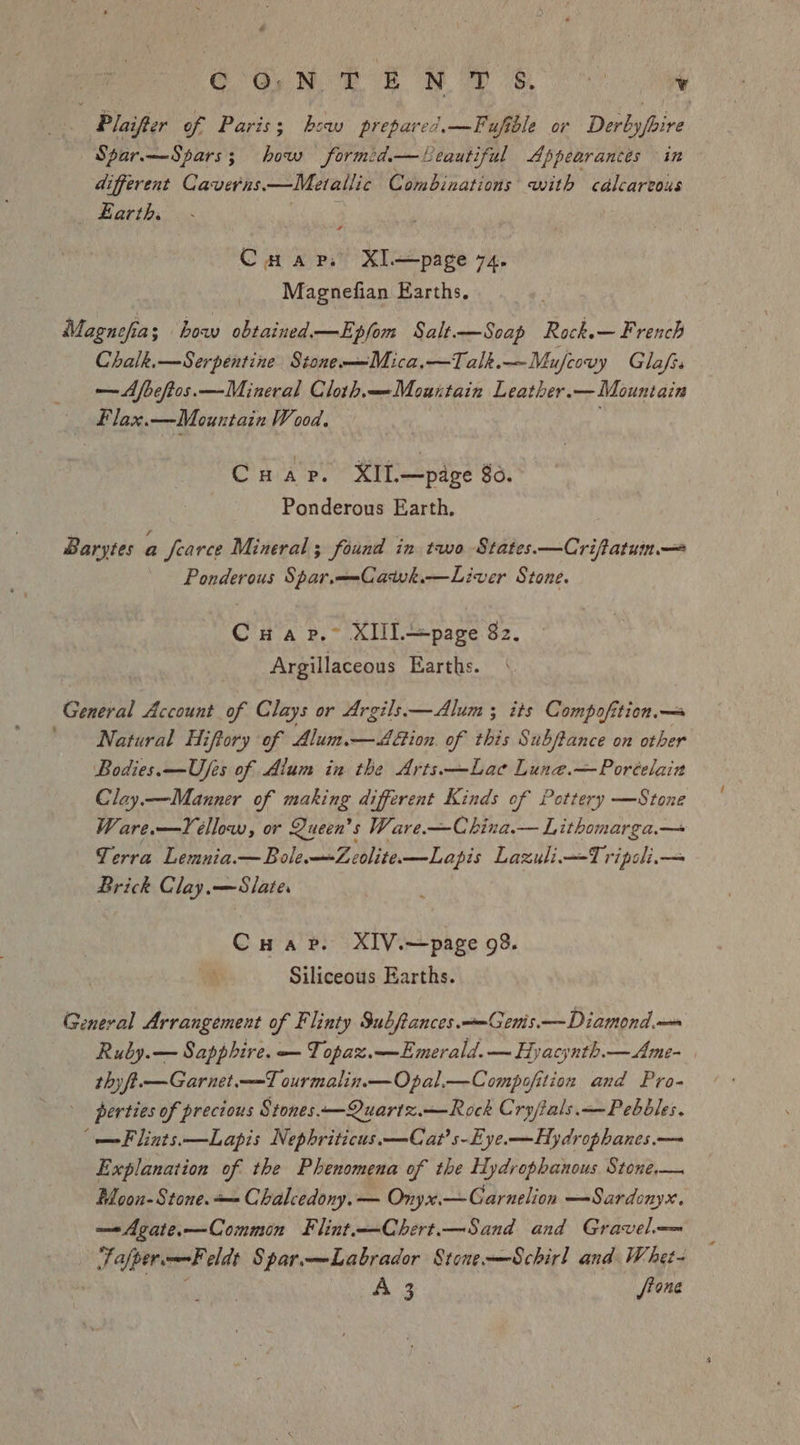 CONTENTS. v
Plaiſter of Paris; how prepared.—Fuſible or Derbyſhire
Spar.—Spars; how formed.—Beautiful Appearances in
different Caverns.—Metallic Combinations with calcareous
Earth.
CHAP. XI.—page 74.
Magneſian Earths.
Magneſia; how obtained.—Epſom Salt.—Soap Rock.—French
Chalk.—Serpentine Stone.—Mica.—Talk.—Muſcovy Glaſs.
—Aſbeſtos.—Mineral Cloth.—Mountain Leather.—Mountain
Flax.—Mountain Wood.
CHAP. XII.—page 80.
Ponderous Earth.
Barytes a ſcarce Mineral; found in two States.—Criſtatum.—
Ponderous Spar.—Cawk.—Liver Stone.
CHAP. XIII.—page 82.
Argillaceous Earths.
General Account of Clays or Argils.—Alum; its Compoſition.—
Natural Hiſtory of Alum.—Action of this Subſtance on other
Bodies.—Uſes of Alum in the Arts.—Lac Lunæ.—Porcelain
Clay.—Manner of making different Kinds of Pottery—Stone
Ware.—Yellow, or Queen's Ware.—China.—Lithomarga.—
Terra Lemnia.—Bole.—Zeolite.—Lapis Lazuli.—Tripoli.—
Brick Clay.—Slate.
CHAP. XIV.—page 98.
Siliceous Earths.
General Arrangement of Flinty Subſtances.—Gems.—Diamond.—
Ruby.—Sapphire.—Topaz.—Emerald.—Hyacynth.—Ame-
thyſt.—Garnet.—Tourmalin.—Opal.—Compoſition and Pro-
perties of precious Stones.—Quartz.—Rock Cryſtals.—Pebbles.
—Flints.—Lapis Nephriticus.—Cat's-Eye.—Hydrophanes.—
Explanation of the Phenomena of the Hydrophanous Stone.—
Moon-Stone.—Chalcedony.—Onyx.—Carnelion—Sardonyx.
—Agate.—Common Flint.—Chert.—Sand and Gravel.—
Jaſper.—Feldt Spar.—Labrador Stone.—Schirl and Whet-
A 3 ſtone